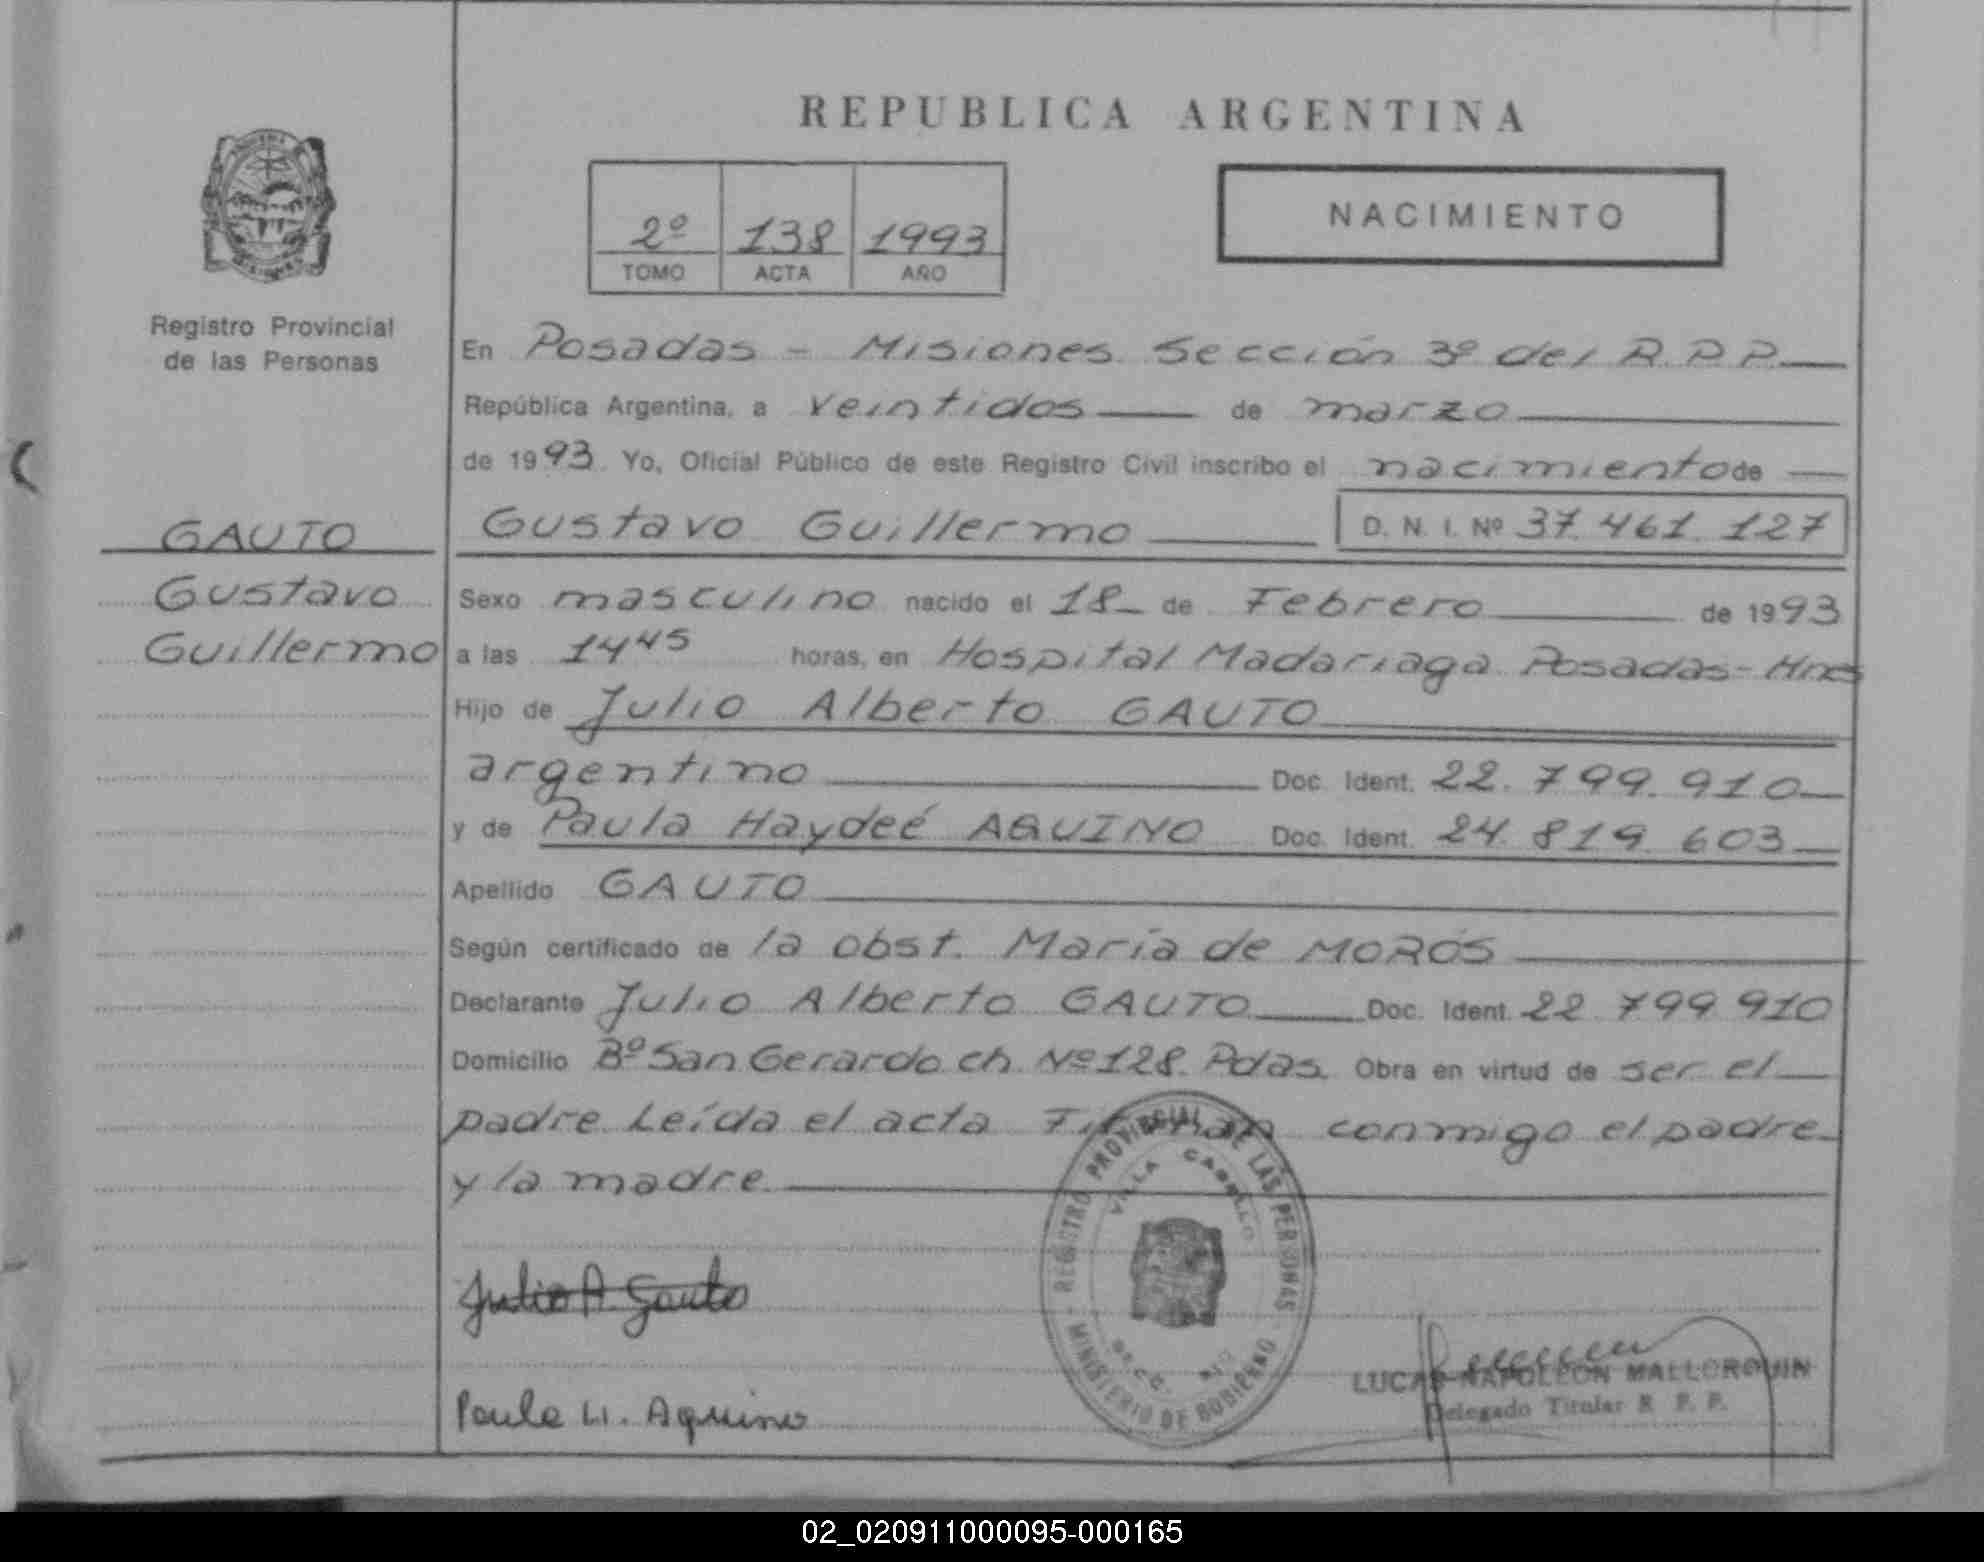 REPUBLICA ARGENTINA
2º 138 1993
TOMO ACTA AÑO
NACIMIENTO
Registro Provincial
de las Personas
En Posadas - Misiones. Sección 3º del R.P.P.
República Argentina, a Veintidos de marzo
de 1993. Yo, Oficial Público de este Registro Civil inscribo el nacimiento de
GAUTO
Gustavo
Guillermo
Gustavo Guillermo D. N. I. Nº 37.461.127
Sexo masculino nacido el 18 de Febrero de 1993
a las 14 45 horas, en Hospital Madariaga Posadas-Mnes
Hijo de Julio Alberto GAUTO
argentino Doc. Ident. 22.799.910
y de Paula Haydeé AQUINO Doc. Ident. 24.819.603
Apellido GAUTO
Según certificado de la obst. María de MOROS
Declarante Julio Alberto GAUTO Doc. Ident. 22.799.910
Domicilio Bº San Gerardo ch. Nº 128. Pdas. Obra en virtud de ser el
padre. Leída el acta Firman conmigo el padre
y la madre
REGISTRO PROVINCIAL DE LAS PERSONAS
VILLA CABELLO
MINISTERIO DE GOBIERNO
Julio A. Gauto
Paula H. Aquino
LUCAS NAPOLEON MALLORQUIN
Delegado Titular R. P. P.
02_020911000095-000165